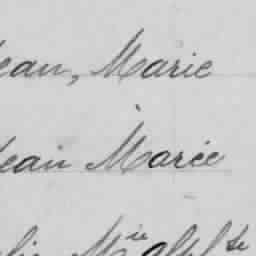 Jean, Marie
Jean Marie
M^ie